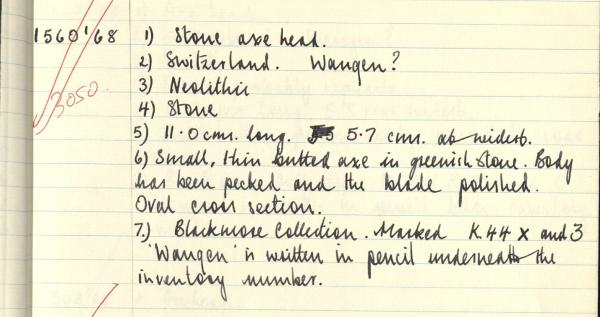 1560'68 1) Stone axe head.
2) Switzerland. Wangen?
3050. 3) Neolithic
4) Stone
5) 11.0 cms. long. 5.7 cms. at widest.
6) Small, thin butted axe in greenish stone. Body
has been pecked and the blade polished.
Oval cross section.
7.) Blackmore Collection. Marked K.44 X and 3
'Wangen' is written in pencil underneath the
inventory number.